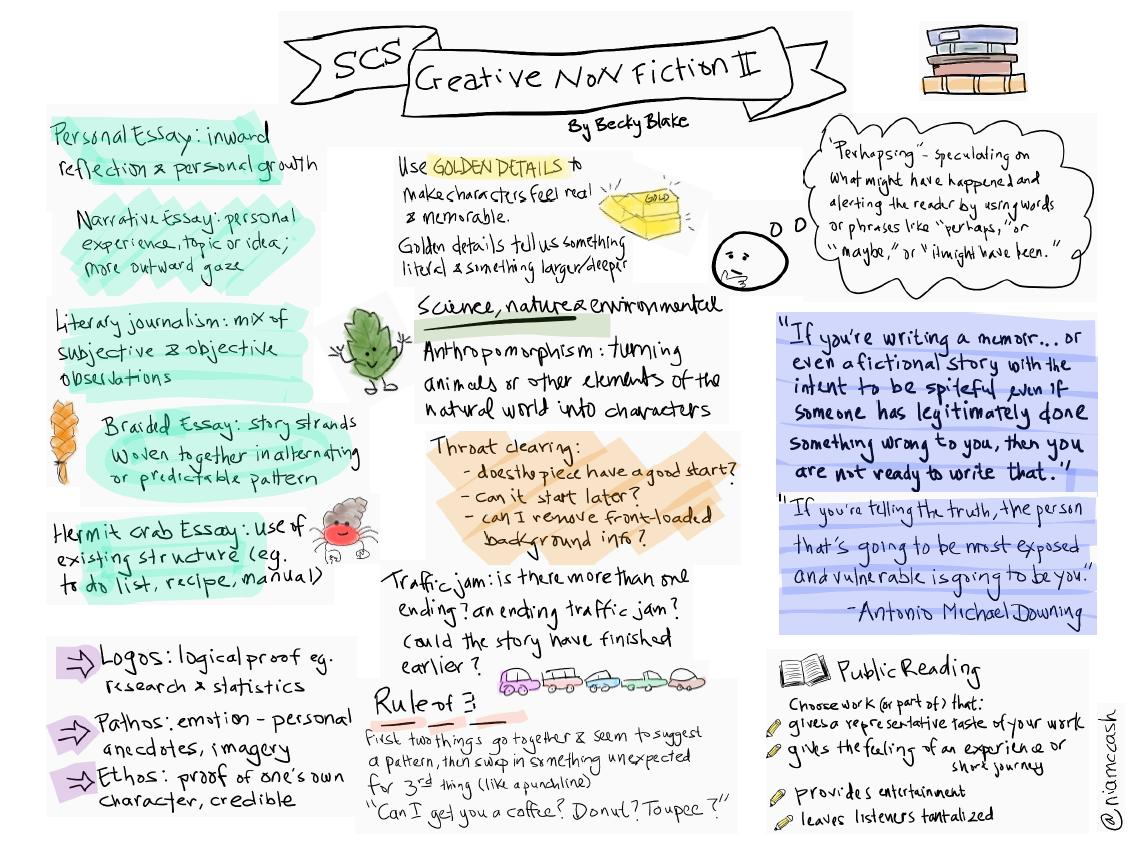 SCS
Creative NoN Fiction II
By Becky Blake
Personal Essay: inward
reflection & personal growth
Narrative Essay: personal
experience, topic or idea;
more outward gaze
Literary journalism: mix of
subjective & objective
observations
Braided Essay: story strands
woven together in alternating
or predictable pattern
Hermit crab Essay: use of
existing structure (eg.
to do list, recipe, manual)
Logos: logical proof eg.
research & statistics
Pathos: emotion - personal
anecdotes, imagery
Ethos: proof of one's own
character, credible
Use GOLDEN DETAILS to
make characters feel real
& memorable.
Golden details tell us something
literal & something larger/deeper
GOLD
Science, nature & environmental
Anthropomorphism: turning
animals or other elements of the
natural world into characters
Throat clearing:
- does the piece have a good start?
- can it start later?
- can I remove front-loaded
background info?
Traffic jam: is there more than one
ending? an ending traffic jam?
Could the story have finished
earlier?
Rule of 3
First two things go together & seem to suggest
a pattern, then swap in something unexpected
for 3rd thing (like a punchline)
"Can I get you a coffee? Donut? Toupee?"
"Perhapsing" - speculating on
what might have happened and
alerting the reader by using words
or phrases like "perhaps," or
"maybe," or "it might have been."
"If you're writing a memoir... or
even a fictional story with the
intent to be spiteful, even if
someone has legitimately done
something wrong to you, then you
are not ready to write that."
"If you're telling the truth, the person
that's going to be most exposed
and vulnerable is going to be you."
- Antonio Michael Downing
Public Reading
Choose work (or part of) that:
gives a representative taste of your work
gives the feeling of an experience or
short journey
provides entertainment
leaves listeners tantalized
@niamccash